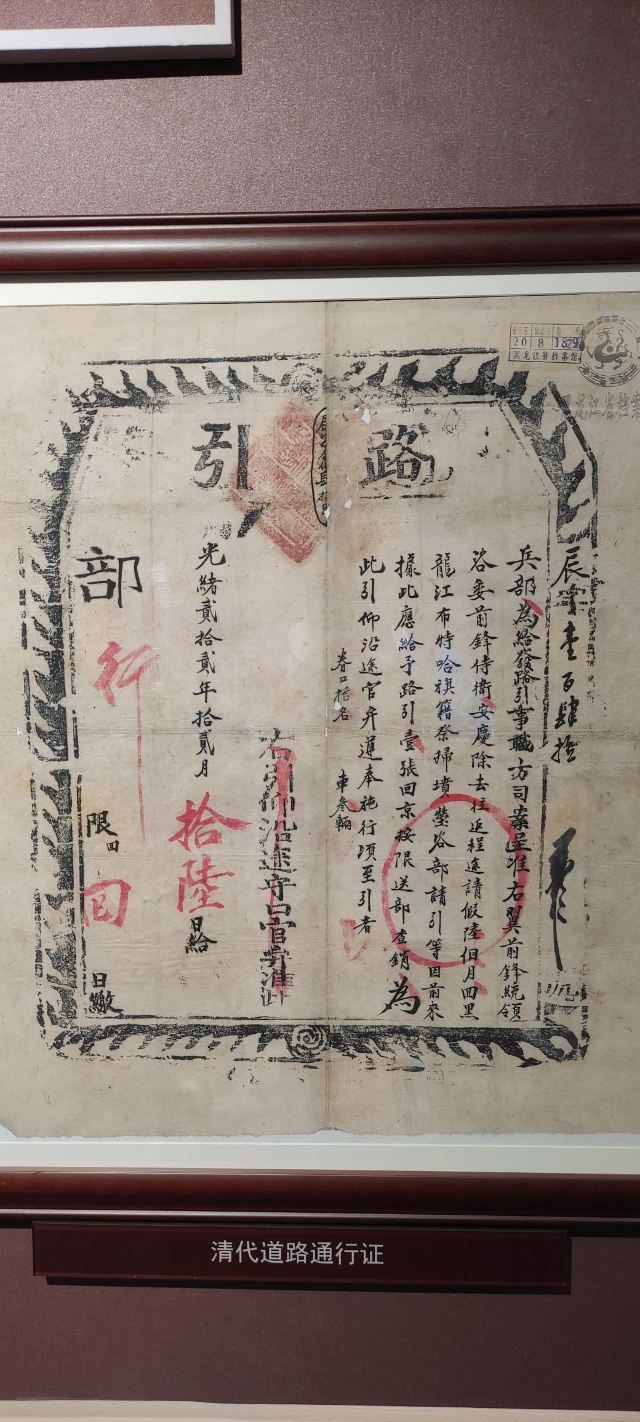 路引
辰字壹百肆拾
兵部為給發路引事職方司案呈准右翼前鋒統領
咨委前鋒侍衛安慶除去往返程途請假陸個月回黑
龍江布特哈旗籍祭掃墳塋咨部請引等因前來
據此應給予路引壹張回京按限送部查銷為
此引仰沿途官弁遵奉施行須至引者
眷口指名 車叁輛
右引仰沿途守口官弁准此
光緒貳拾貳年拾貳月拾陸日給
部
行
限回
回
日繳
20 8 1829
黑龍江省檔案館
清代道路通行证